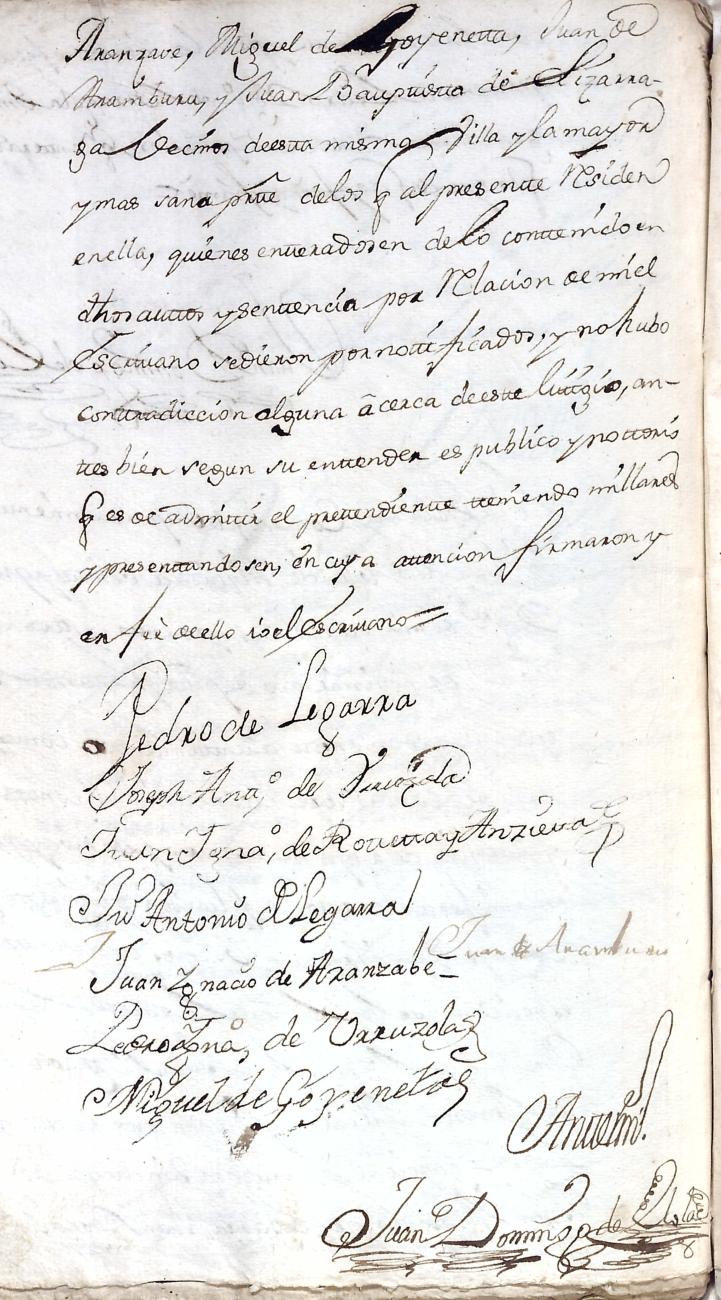 Aranzave, Miguel de Goyenetta, Juan de
Aramburu, y Juan Bauptista de Lizarra-
ga Vecinos de estta misma Villa y la mayor
y mas sana prtte delos q al presentte Residen
en ella, quienes entteradosen de lo conttenido en
dhos auttos y senttencia por Relacion de mi el
Escrivano se dieron por nottificados, y no hubo
conttradiccion alguna â cerca de estte littigio, an-
ttes bien segun su enttender es publico y nottorio
q es de admittir el prettendientte tteniendo millares
y presenttandosen, en cuya attencion firmaron y
en feè de ello io el Escrivano=
Pedro de Legarra
Joseph Anto. de Urruzola
Juan Igna.o de Rouetta y Anzieta
Jun Antonio de Legarra
Juan de Aramburu
Juan Ygnacio de Aranzabe
Pedro Igna.o de Urruzola
Miguel de Goyeneta
Antte mi
Juan Domingo de